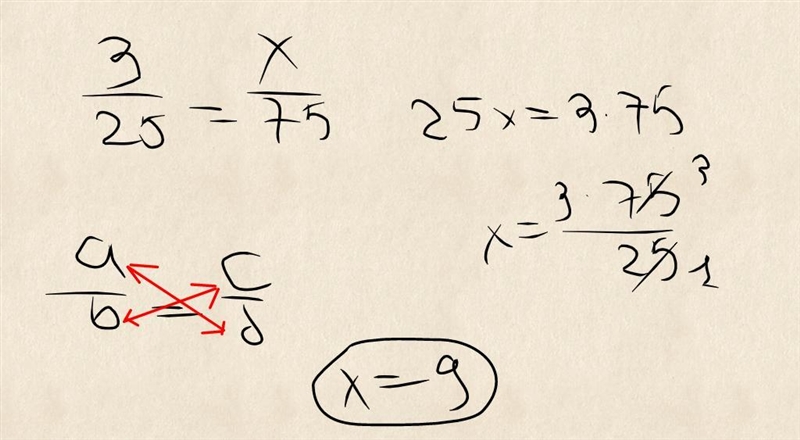 3/25 = x/75
25x = 3·75
x = 3·75/25
3
1
a/b = c/d
x = 9